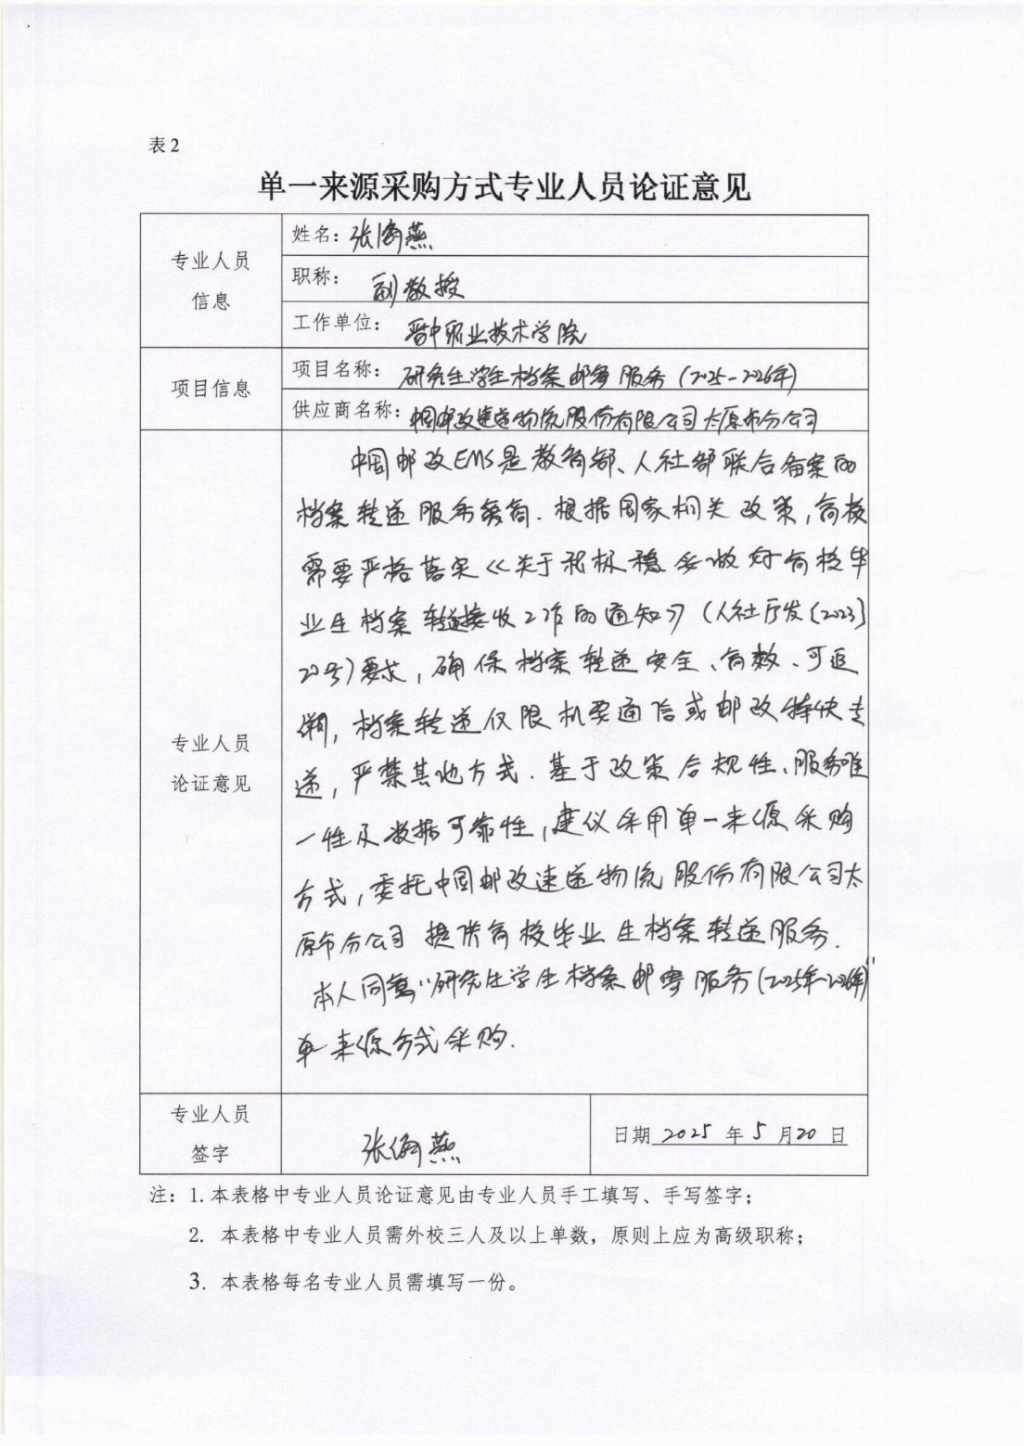 表2
单一来源采购方式专业人员论证意见
专业人员
信息
姓名：张海燕
职称：副教授
工作单位：晋中职业技术学院
项目信息
项目名称：研究生学生档案邮寄服务（2025-2026年）
供应商名称：中国邮政速递物流股份有限公司太原市分公司
专业人员
论证意见
中国邮政EMS是教育部、人社部联合备案的
档案转递服务商.根据国家相关政策,高校
需要严格落实《关于积极稳妥做好高校毕
业生档案转递接收工作的通知》(人社厅发〔2023〕
20号)要求,确保档案转递安全、高效、可追
溯,档案转递仅限机要通信或邮政特快专
递,严禁其他方式.基于政策合规性、服务唯
一性及数据可靠性,建议采用单一来源采购
方式,委托中国邮政速递物流股份有限公司太
原市分公司提供高校毕业生档案转递服务.
本人同意"研究生学生档案邮寄服务(2025年-2026年)"
单一来源方式采购.
专业人员
签字
张海燕
日期 2025 年 5 月20 日
注：1.本表格中专业人员论证意见由专业人员手工填写、手写签字；
2. 本表格中专业人员需外校三人及以上单数，原则上应为高级职称；
3. 本表格每名专业人员需填写一份。